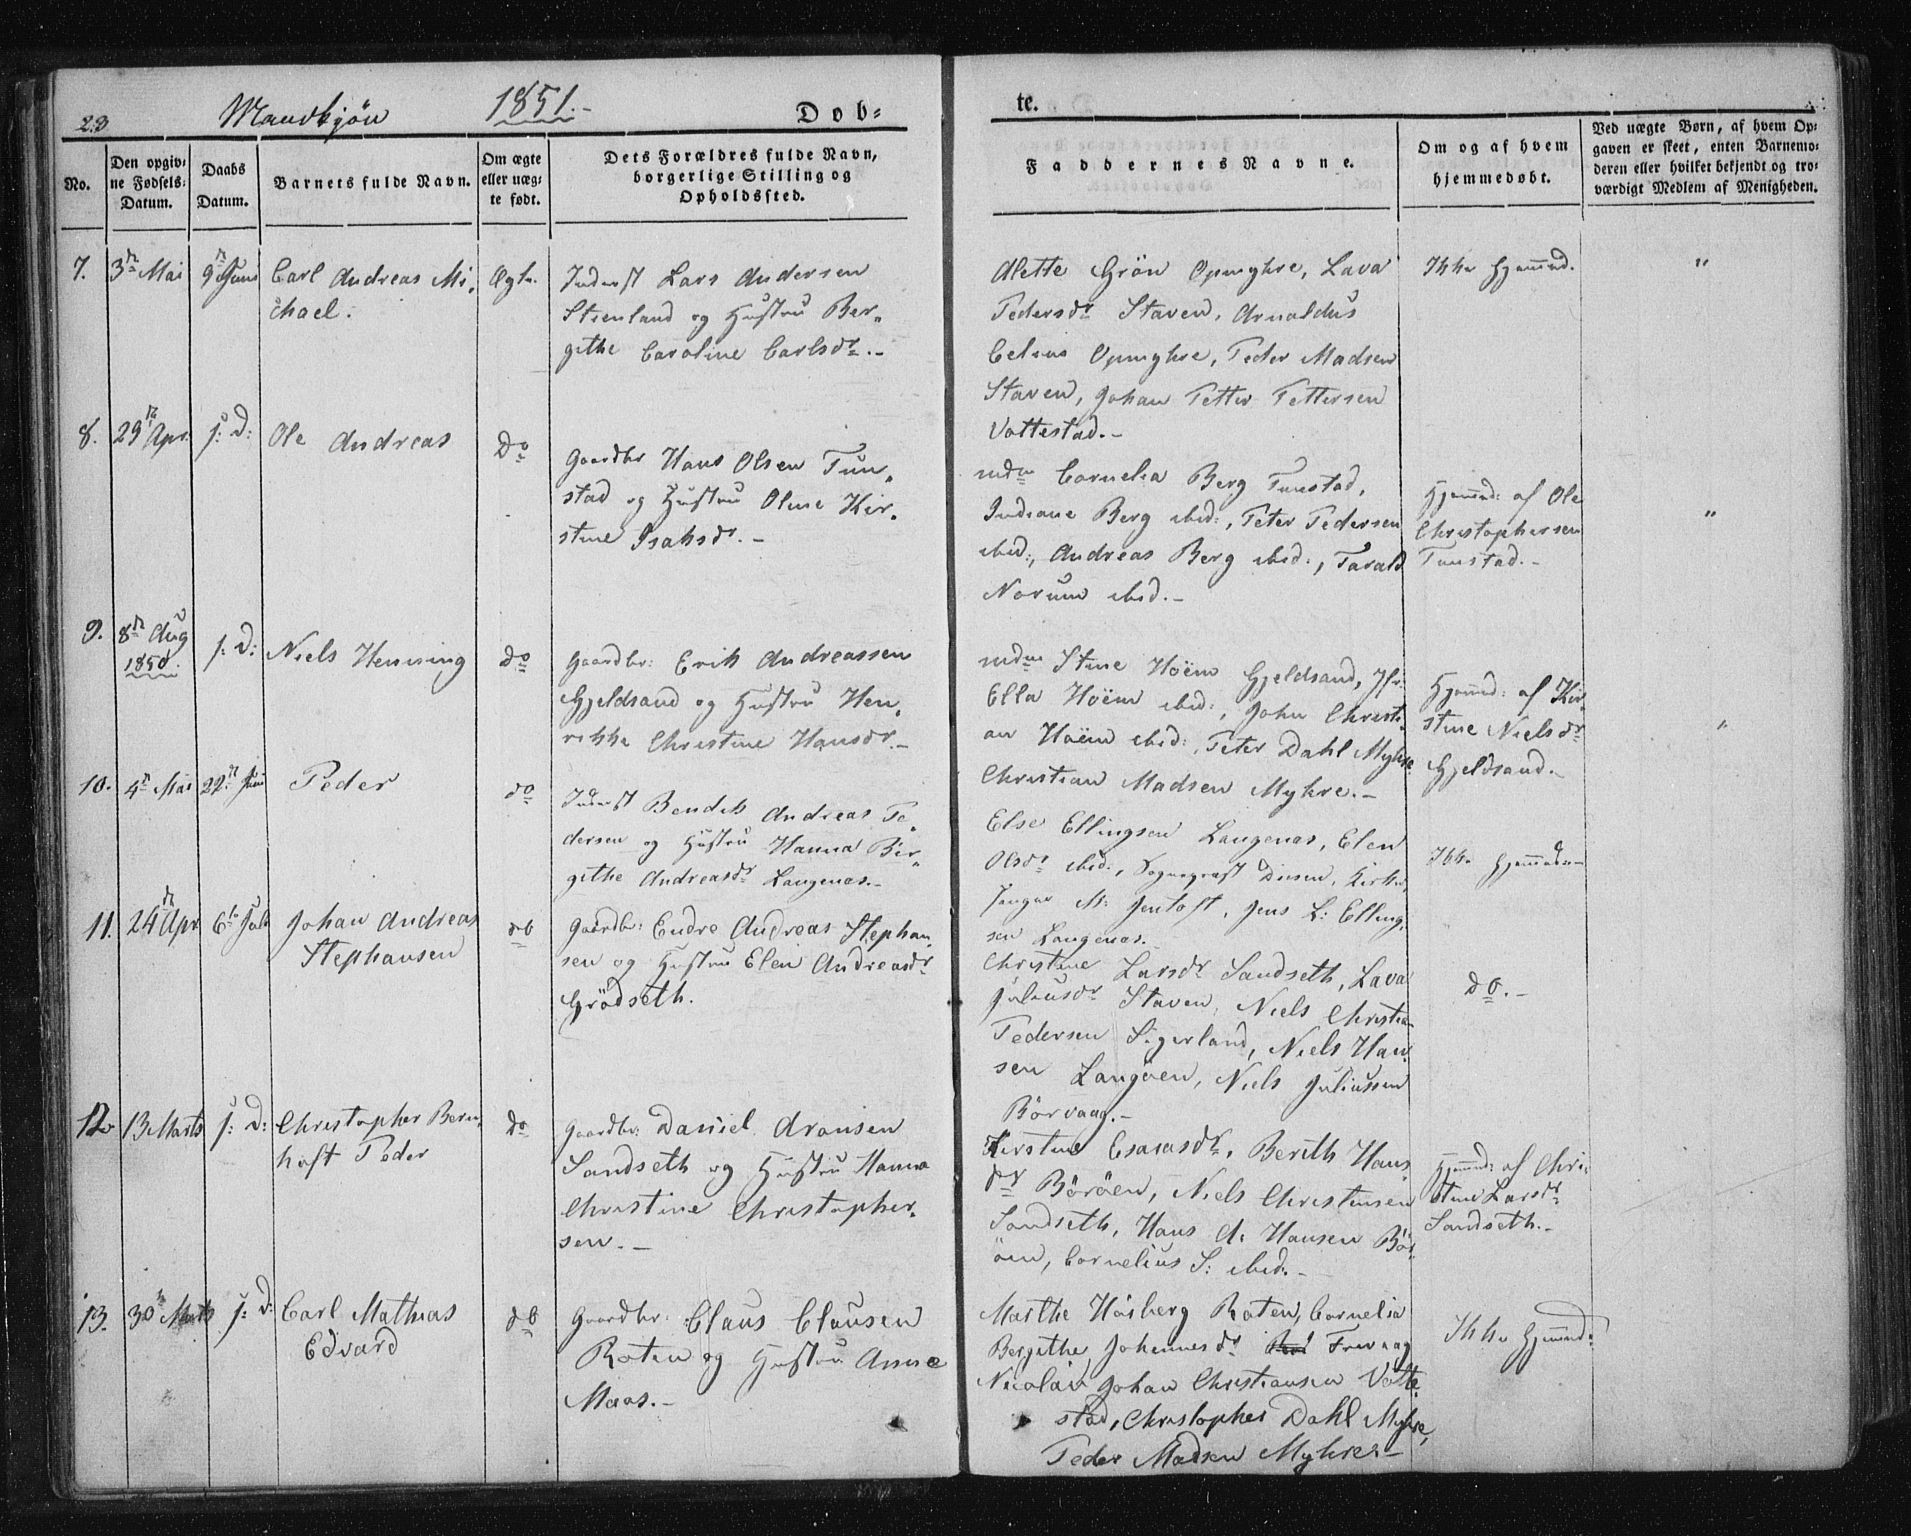 23 Mandkjön 1851.- Døb=
te.
No.
Den opgiv=
ne Fødsels=
Datum.
Daabs
Datum.
Barnets fulde Navn.
Om ægte
eller uæg=
te født.
Dets Forældres fulde Navn,
borgerlige Stilling og
Opholdssted.
Faddernes Navne.
Om og af hvem
hjemmedøbt.
Ved uægte Børn, af hvem Op=
gaven er skeet, enten Barnemo=
deren eller hvilket bekjendt og tro=
værdigt Medlem af Menigheden.
7. 3dn Mai 9dn Juni Carl Andreas Mi-
chael.
Ægte.
Inderst Lars Andersen
Steenland og Hustru Ber-
githe Caroline Carlsdr.-
Alette Grön Opmyhre, Lava
Pedersdr Staven, Arnoldus
Celius Opmyhre, Peder Madsen
Staven, Johan Petter Pettersen
Vottestad.-
Ikke Hjemmed.
"
8. 29dn Apr. s: D: Ole Andreas
Do
Gaardbr Hans Olsen Tun-
stad og Hustru Oline Kir-
stine Isaksdr.-
mdm Cornelia Berg Tunstad,
Indiane Berg ibid:, Peter Pedersen
ibid:, Andreas Berg ibid:, Tarald
Norum ibid.-
Hjemmed: af Ole
Christophersen
Tunstad.-
"
9. 8dn Aug
1850.
s: D: Niels Henning
do
Gaardbr: Erik Andreassen
Gjeldsand og Hustru Hen-
rikke Christine Hansdr.-
mdm Stine Höem Gjeldsand, Jfr:
Ella Höem ibid:, John Christi-
an Höem ibid:, Peter Dahl Myhre
Christian Madsen Myhre.-
Hjemmed: af Kir-
stine Nielsdr
Gjeldsand.-
"
10. 4dn Mai 22dn Juni Peder
do
Inderst Bendik Andreas Pe-
dersen og Hustru Hanna Bir-
githe Andreasdr Langenas.-
Else Ellingsen Langenas, Elen
Olsdr ibid:, Sognepræst Diesen, Kirke-
sanger M: Jentoft, Jens L: Elling-
sen Langenas.-
Ikke Hjemmed.-
11. 24dn Apr 6te Juli Johan Andreas
Stephansen
do
Gaardbr: Endre Andreas Stephan-
sen og Hustru Elen Andreasdr
Grödseth.
Christine Larsdr Sandseth, Lava
Juliusdr Staven, Niels Christian
Pedersen Sigerland, Niels Han-
sen Langöen, Niels Juliussen
Börvaag.-
do.-
12. 13 Marts s: D: Christopher Bern-
hoft Peder
do
Gaardbr: Daniel Aronsen
Sandseth og Hustru Hanna
Christine Christopher-
sen.-
Kirstine Esaiasdr, Berith Hans-
dr Böröen, Niels Christensen
Sandseth, Hans A: Hansen Bör-
öen, Cornelius S: ibid:-
Hjemmd: af Chri-
stine Larsdr
Sandseth.-
13. 30te Marts s: D: Carl Mathias
Edvard
do
Gaardbr: Claus Clausen
Roten og Hustru Anne
Maas.-
Marthe Haäberg Roten, Cornelia
Bergithe Johannesdr Frevaag
Nicolai Johan Christiansen Votte-
stad, Christopher Dahl Myhre,
Peder Madsen Myhre-
Ikke Hjemmd: